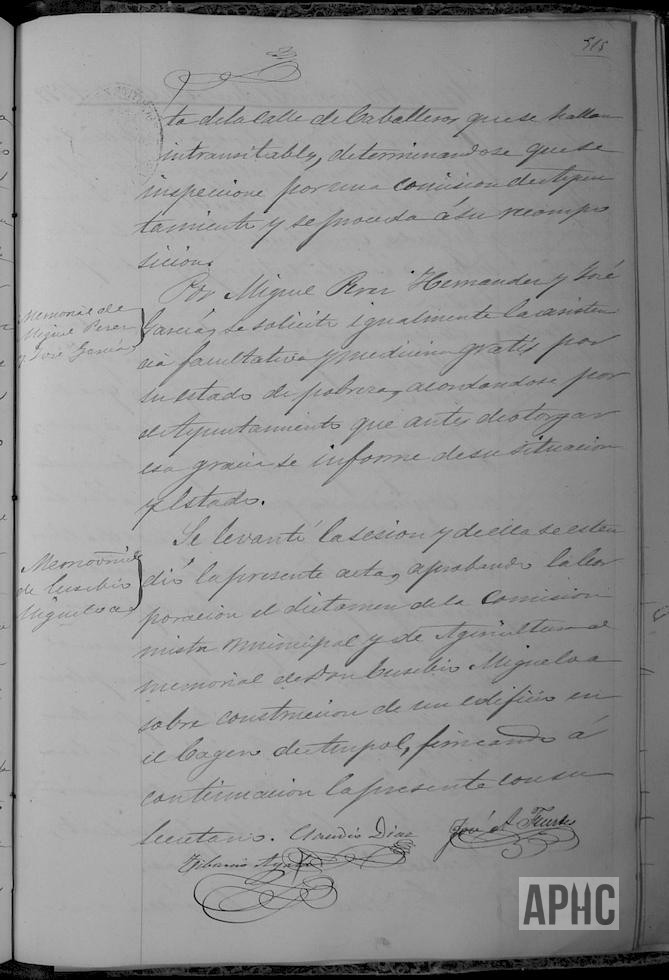 515
ta de la Calle de Caballeros que se hallan
intransitables, determinandose que se
inspecione por una comision de Ayun
tamiento y se proceda á su recompo
sicion.
Por Miguel Perez Hernandez y José
Garcia, se solicitó igualmente la asisten
cia facultativa y medicina gratis por
su estado de pobreza, acordandose por
el Ayuntamiento que antes de otorgar
esa gracia se informe de su situacion
y Estado.
Se levantó la sesion y de ella se esten
dió la presente acta, aprobando la Cor
poracion el dictamen de la Comision
mista Municipal y de Agricultura al
memorial de Don Eusebio Migueloa
sobre construccion de un edificio en
el de firmando á
continuacion la presente con su
Secretario. Claudio Diaz
José
Tiburcio
Memorial de
Miguel Perez
y José Garcia
Memorial
de Eusebio
Migueloa
APHC